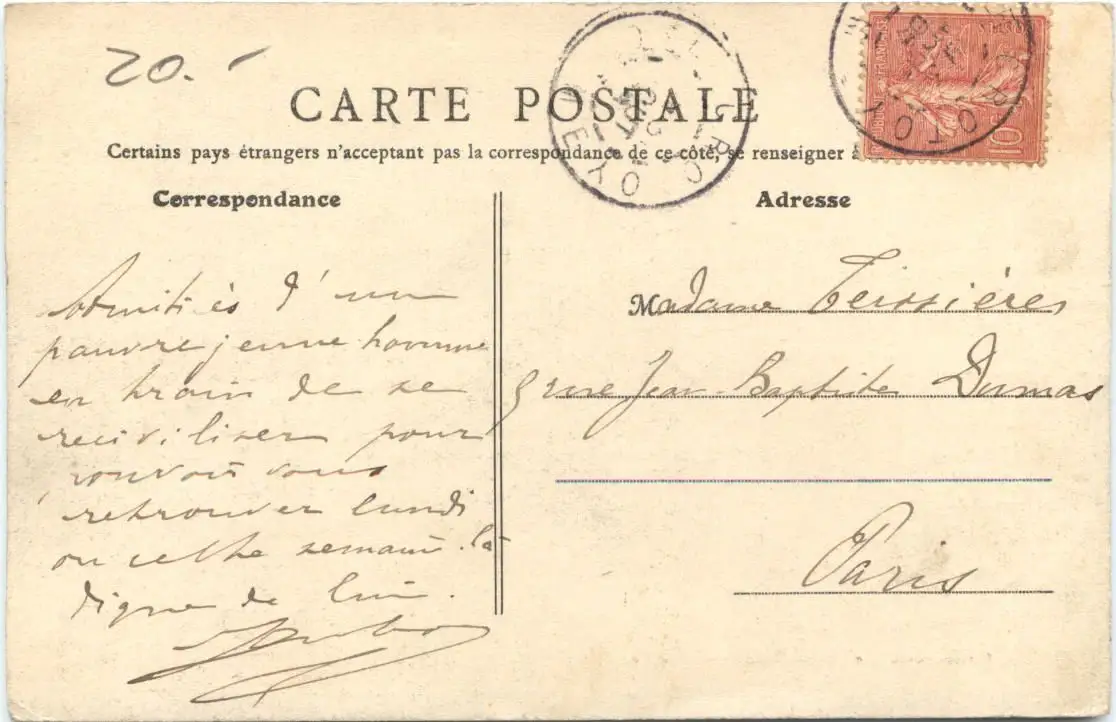 20.-
CARTE POSTALE
Certains pays étrangers n'acceptant pas la correspondance de ce côté, se renseigner à
Correspondance
Adresse
Amitiés d'un
pauvre jeune homme
en train de se
reciviliser pour
pouvoir vous
retrouver lundi
ou cette semaine-là
digne de lui.
Madame Teissières
9 rue Jean-Baptiste Dumas
Paris
10c